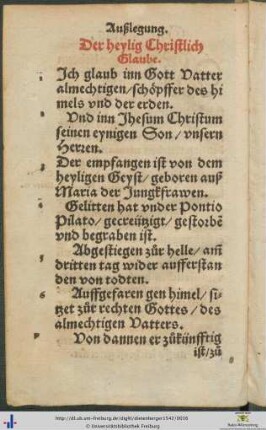 Außlegung.
Der heylig Christlich
Glaube.
1 Jch glaub inn Gott Vatter
almechtigen / schöpffer des hi
mels vnd der erden.
2 Vnd inn Jhesum Christum
seinen eynigen Son / vnsern
Herren.
3 Der empfangen ist von dem
heyligen Geyst / geboren auß
Maria der Jungkfrawen.
4 Gelitten hat vnder Pontio
Pilato / gecreützigt / gestorbē
vnd begraben ist.
5 Abgestiegen zůr helle / am̄
dritten tag wider aufferstan
den von todten.
6 Auffgefaren gen himel / si-
tzet zůr rechten Gottes / des
almechtigen Vatters.
7 Von dannen er zůkünfftig
ist / zů
© Universitätsbibliothek Freiburg